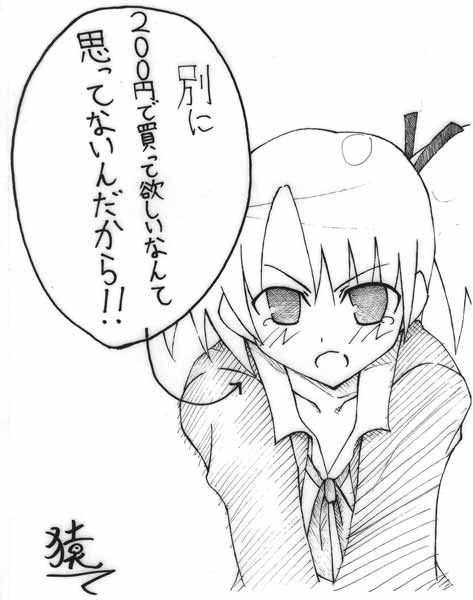 別に
200円で買って欲しいなんて
思ってないんだから!!
猿